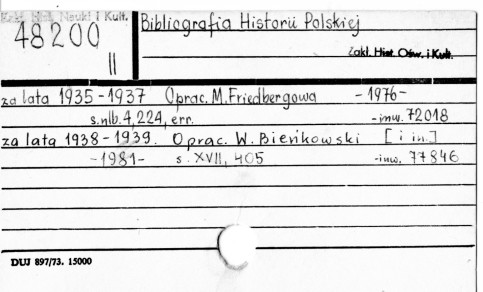 Zakł. Hist. Nauki i Kult.
48200
II
Bibliografia Historii Polskiej
Zakł. Hist. Ośw. i Kult.
za lata 1935-1937 Oprac. M. Friedbergowa -1976-
s. nlb. 4, 224, err. -inw. 72018
za lata 1938-1939. Oprac. W. Bieńkowski [i in.]
-1981- s. XVII, 405 -inw. 77846
DUJ 897/73. 15000